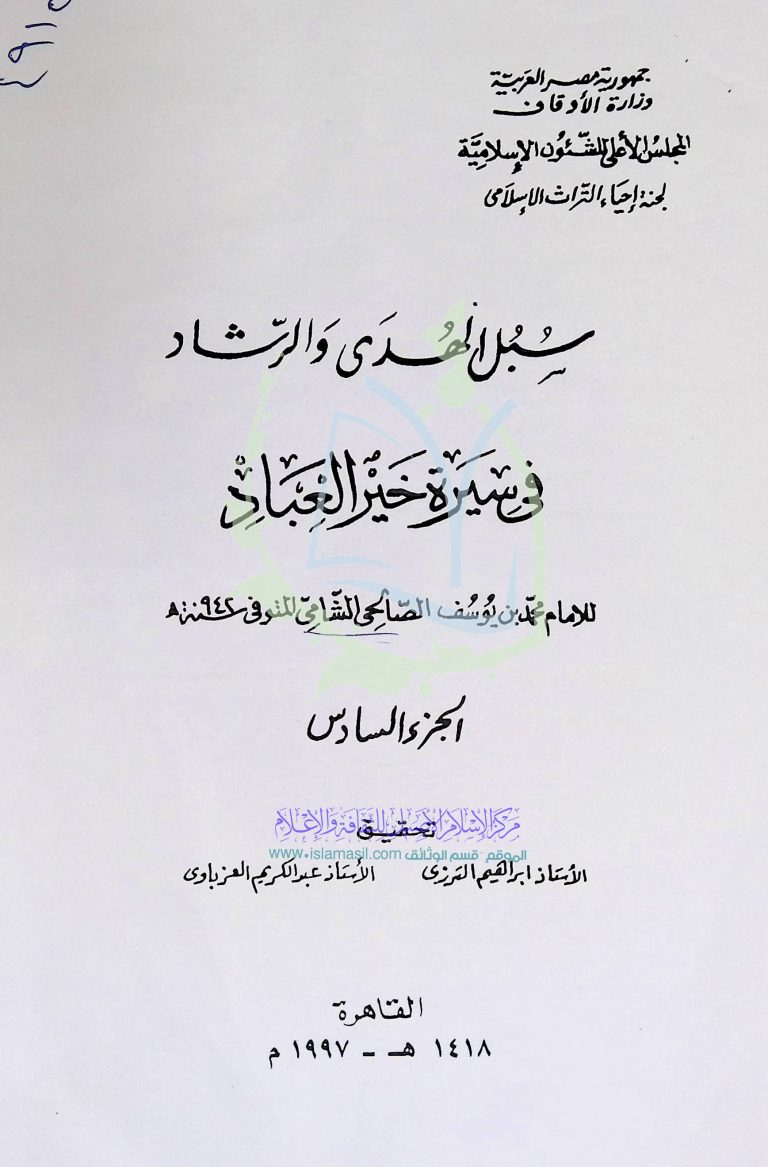 جمهورية مصر العربية
وزارة الأوقاف
المجلس الأعلى للشئون الإسلامية
لجنة إحياء التراث الإسلامى
سُبُل الهُدَى وَالرّشاد
فى سِيرَة خَيْر العِبَادِ
للامام محمّد بن يُوسُف الصّالحِى الشّامِىّ المتوفى سنة ٩٤٢ هـ
الجزء السادس
مركز الإسلام الأصيل للثقافة والإعلام
تحقيق
الموقع - قسم الوثائق www.islamasil.com
الأستاذ ابراهيم الترزى الأستاذ عبد الكريم العزباوى
القاهرة
١٤١٨ هـ - ١٩٩٧ م